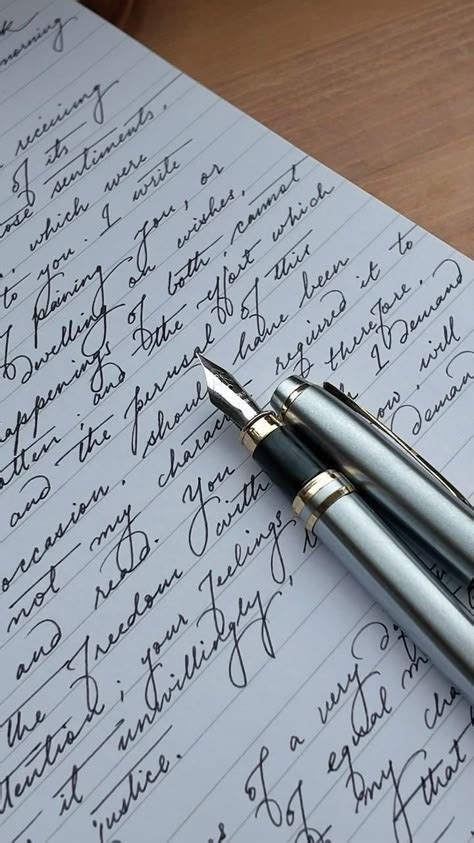 morning
receiving
of its
ose sentiments,
which were
to you. I write
paining you, or
Dwelling on wishes,
appenings of both, cannot
atten; and the effort which
and the perusal of this
occasion, should have been
not my charac required it to
and read. You therefore,
the freedom with h I Demand
ttention; your feelings, ow, will
it unwillingly, deman
justice.
of a very d
of equal m
of my cha
that